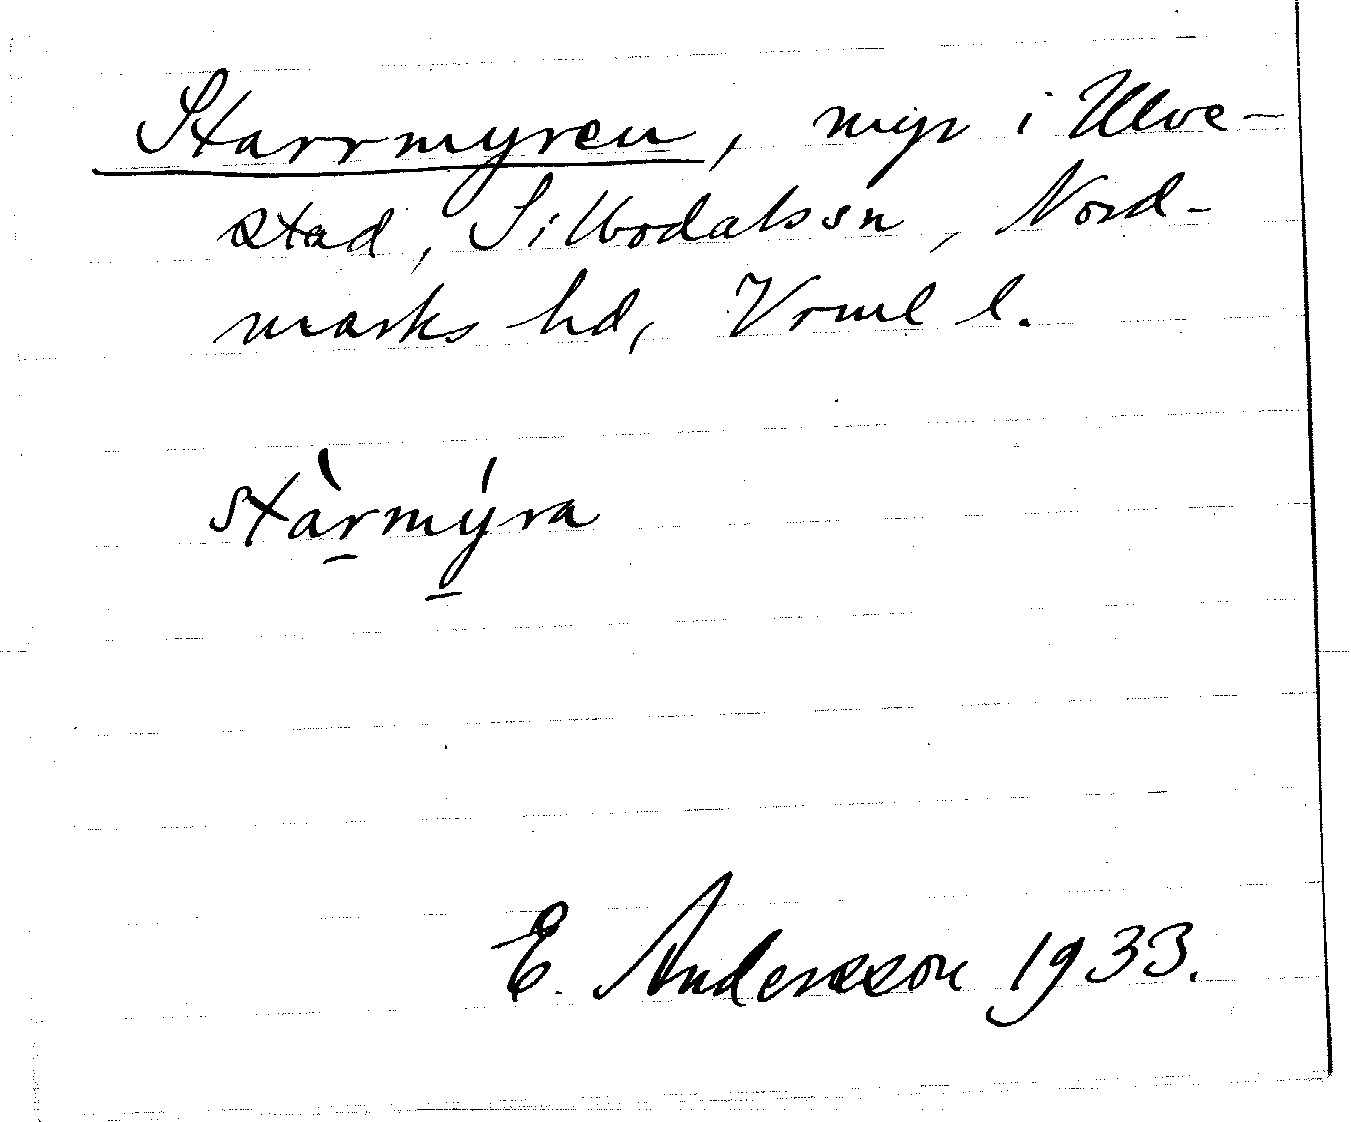 Starrmyren, myr i Ulve-
stad, Silbodals sn, Nord-
marks hd, Vrml l.
stàrmýra
E. Andersson 1933.